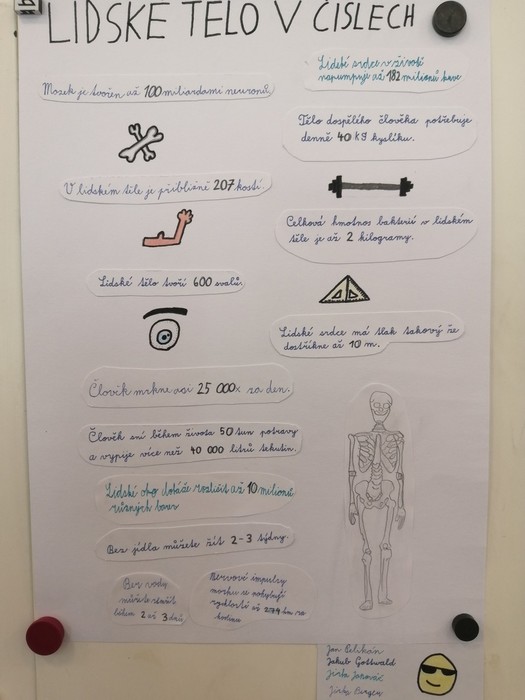 LIDSKÉ TĚLO V ČÍSLECH
Mozek je tvořen až 100 miliardami neuronů.
V lidském těle je přibližně 207 kostí.
Lidské tělo tvoří 600 svalů.
Člověk mrkne asi 25 000x za den.
Člověk sní během života 50 tun potravy
a vypije více než 40 000 litrů tekutin.
Lidské oko dokáže rozlišit až 10 milionů
různých barev
Bez jídla můžete žít 2-3 týdny.
Bez vody
můžete
během 2 až 3 dnů
Nervové impulsy
mozku se pohybují
rychlostí až 274 km za
hodinu
Lidské srdce v životě
napumpuje až 182 milionů krve
Tělo dospělého člověka potřebuje
denně 40 kg kyslíku.
Celková hmotnos bakterií v lidském
těle je až 2 kilogramy.
Lidské srdce má tlak takový že
dostříkne až 10 m.
Jan Pelikán
Jakub Gottwald
Jirka
Jirka